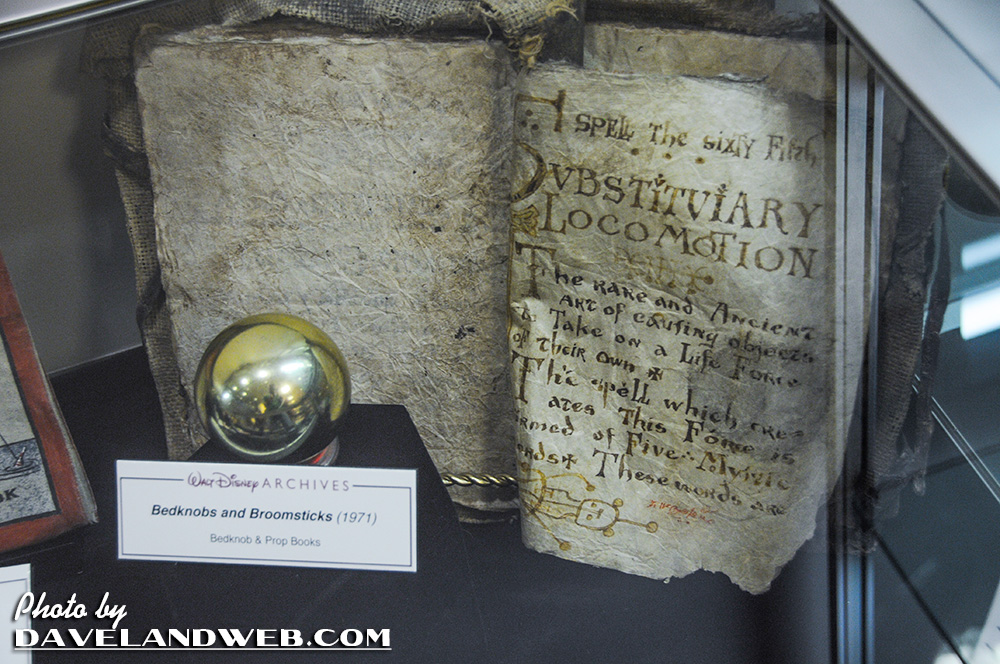 Spell The Sixty Fifth
SVBSTiTVIARY
LOCOMOTION
The RARE and Ancient
ART of causing objects
to Take on a Life Force
of their own
The spell which cre-
ates This Force is
formed of Five Mystic
words These words are
WALT DISNEY ARCHIVES
Bedknobs and Broomsticks (1971)
Bedknob & Prop Books
OK
Photo by
DAVELANDWEB.COM